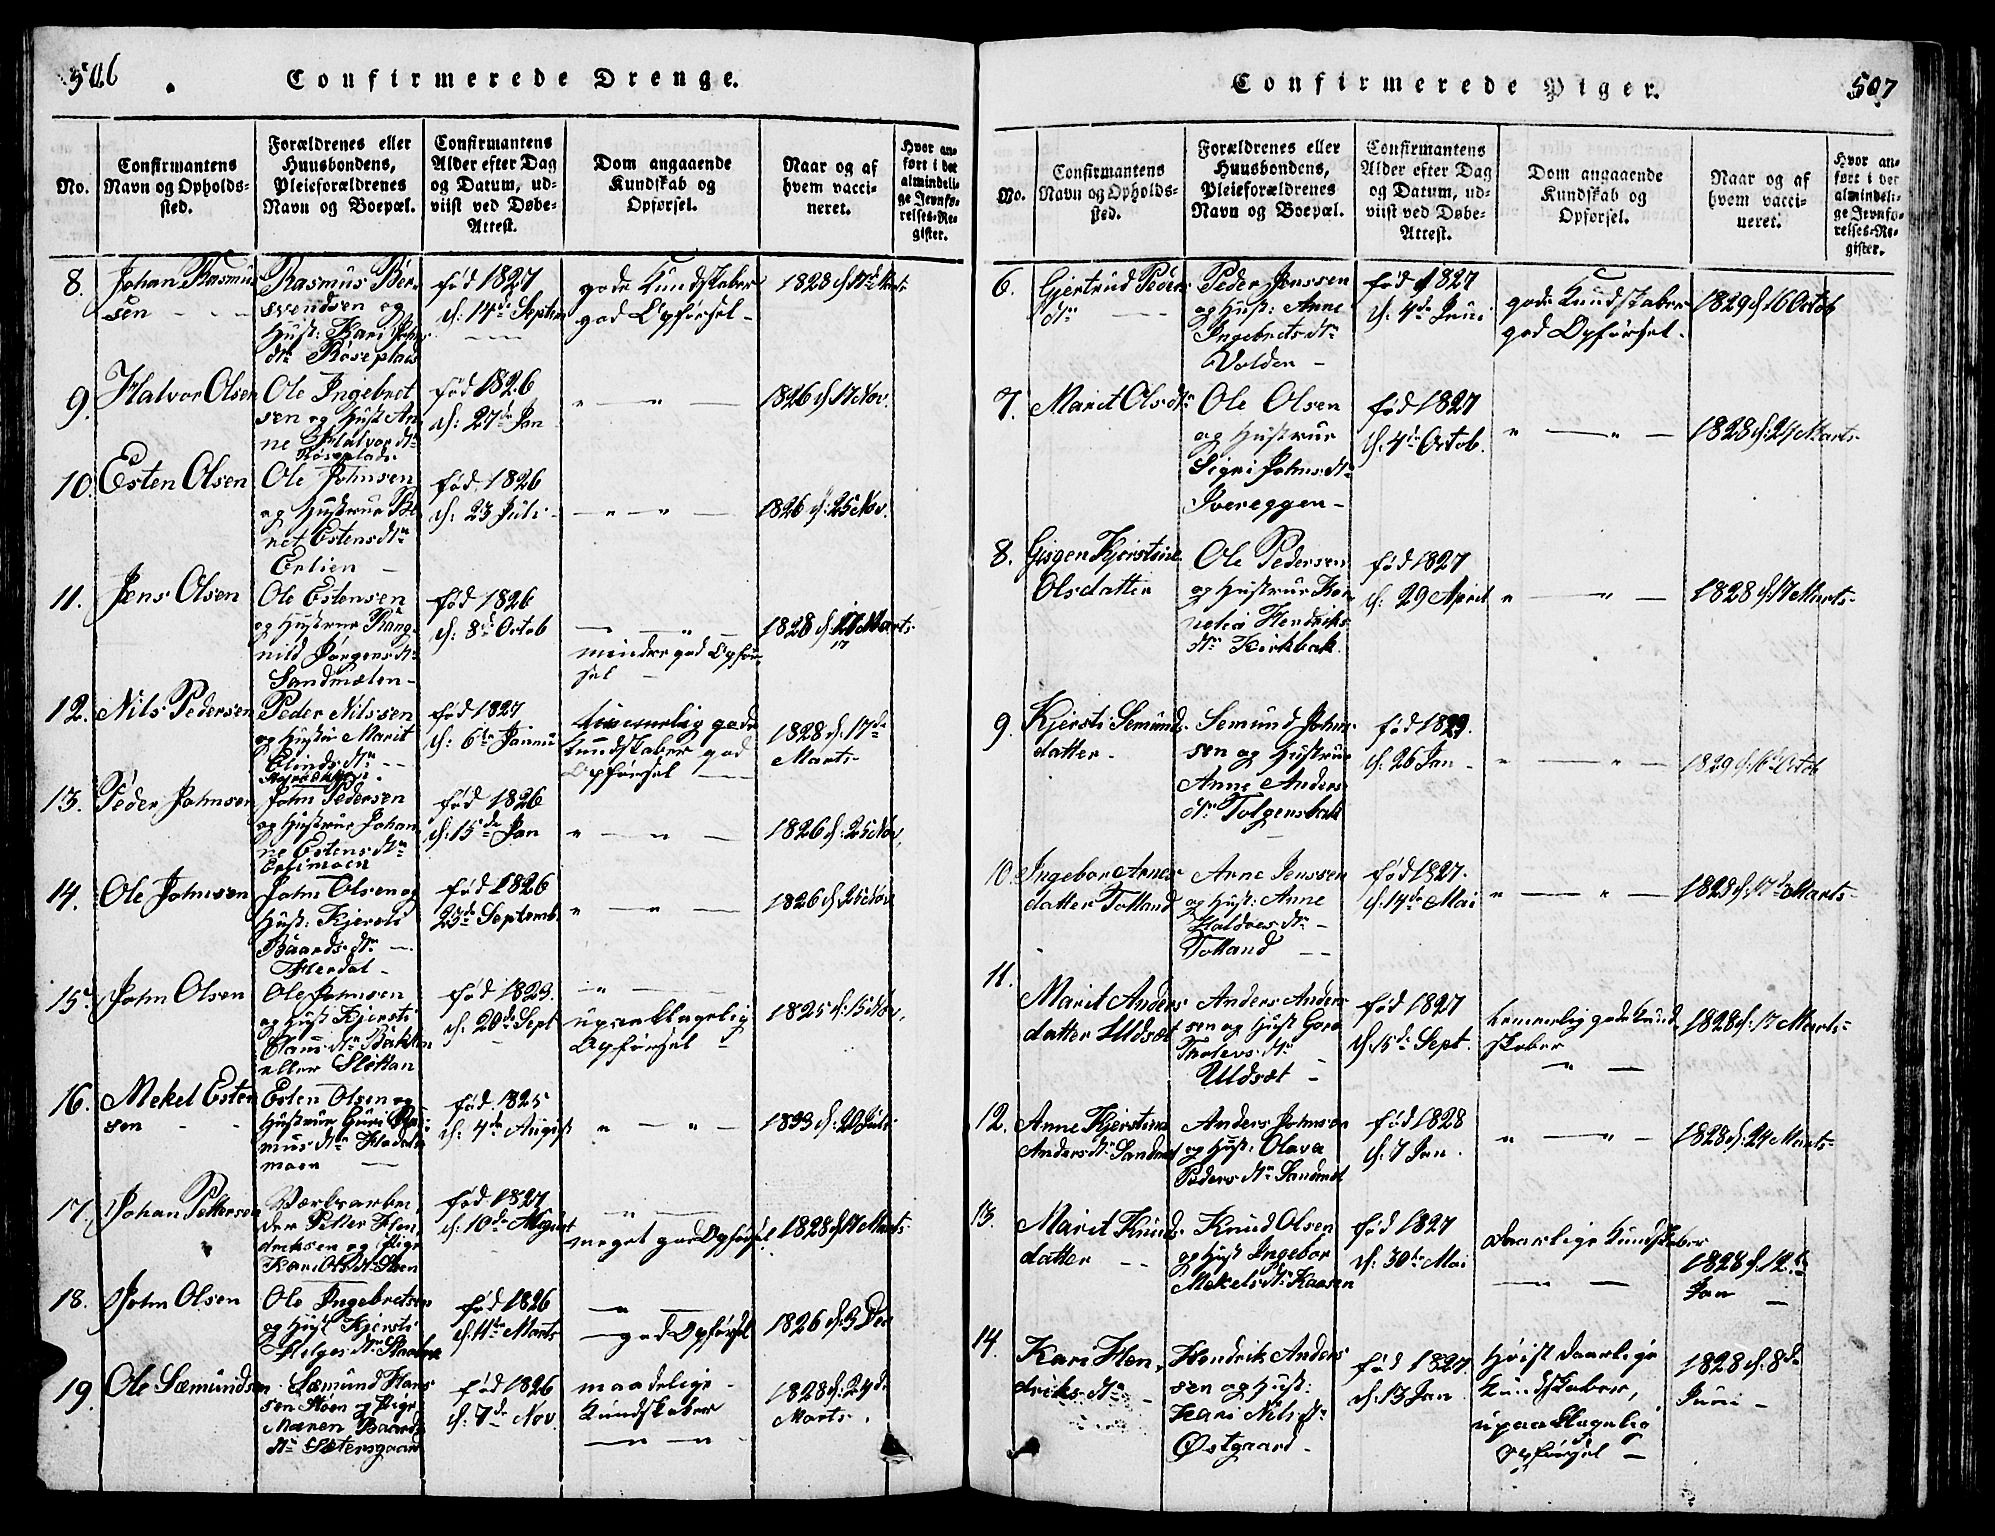 506
Confirmerede Drenge.
No.
Confirmantens
Navn og Opholds-
sted.
Forældrenes eller
Huusbondens,
Pleieforældrenes
Navn og Boepæl.
Confirmantens
Alder efter Dag
og Datum, ud-
viist ved Døbe-
Attest.
Dom angaaende
Kundskab og
Opførsel.
Naar og af
hvem vacci-
neret.
Hvor an-
ført i det
almindeli-
ge Jevnfø-
relses-Re-
gister.
8.
Johan Rasmus
sen
Rasmus Ber
svendsen og
Hust: Kari Johns
dtr Røseplads
fød 1827
d: 14de Septem
gode Kundskaber
god Opførsel -
1828 d. 17de Marts
9.
Halvor Olsen
Ole Ingebret
sen og Hust An
ne Halvor dtr
Røseplads
fød 1826
d: 27de Jan
" — " —
1826 d. 17 Nov.
10.
Esten Olsen
Ole Johnsen
og Hustrue Be
ret Estensdtr
Erlien -
fød 1826
d: 23 Juli
— " — " —
1826 d: 25 Nov.
11.
Jens Olsen
Ole Estensen
og Hustrue Rang
nild Jørgensdtr
Sandmælen -
fød 1826
d: 8de Octob
— " —
mindre god Opfør
sel -
1828 d. 17 Marts
17
12.
Nils Pedersen
Peder Nilssen
og Hustru Marit
Elindsdtr
fød 1827
d: 6te Janu
temmelig gode
Kundskaber god
Opførsel —
1828 d: 17de
Marts
13.
Peder Johnsen
John Pedersen
og Hustrue Johan
ne Estensdtr
Erlimoen
fød 1826
d: 15de Jan
" — " —
1826 d: 25 Nov.
14.
Ole Johnsen
John Olsen og
Hust: Kjersti
Baardsdtr —
Flerdal -
fød 1826
23de Septemb
" — " —
1826 d. 25 Nov
15.
John Olsen
Ole Johnsen
og Hust Kjersti
Clausdtr Bakken
eller Sletten
fød 1823.
d. 20de Sept
" —
upaaklagelig
Opførsel
1825 d: 15 Nov.
16.
Mekel Esten
sen
Esten Olsen og
Hustrue Guri Ras
musdtr Floden
moen —
fød 1825
d: 4de August
" — " —
1833 d. 20 Juli
17.
Johan Pettersen
Værksarbei
der Petter Hen
driksen og Pige
Kari Olsdtr Støen
fød 1827
d: 10de August
— " —
meget god Opførsel
1828 d. 17 Marts
18.
John Olsen
Ole Ingebretsen
og Hust Kjersti
Helgesdtr
fød 1826
d. 11te Marts
— " —
— god Opførsel
1826 d: 3 Dec
19.
Ole Sæmundsen
Sæmund Hans
sen Støen og Pige
Maren Baards
dtr Sætersgaard
fød 1826
d: 7de Nov
maadelige
Kundskaber
— " — " —
1828 d: 24de
Marts
507
Confirmerede Piger.
No.
Confirmantens
Navn og Opholds-
sted.
Forældrenes eller
Huusbondens,
Pleieforældrenes
Navn og Boepæl.
Confirmantens
Alder efter Dag
og Datum, ud-
viist ved Døbe-
Attest.
Dom angaaende
Kundskab og
Opførsel.
Naar og af
hvem vacci-
neret.
Hvor an-
ført i det
almindeli-
ge Jevnfø-
relses-Re-
gister.
6.
Gjertrud Peders
dtr
Peder Jonssen
og Hust: Anne
Ingebretsdtr
Volden -
fød 1827
d. 4de Juni
gode Kundskaber
god Opførsel -
1829 d 16 Octob
7.
Marit Olsdtr
Ole Olsen
og Hustrue
Sigri Johnsdtr
Ivereggen -
fød 1827
d. 4de Octob.
" — " —
1828 d. 24 Marts
8.
Gisgen Kjerstine
Olsdatter
Ole Pedersen
og Hustrue Kor
nelia Hendriks
dtr Kirkbak
fød 1827
d: 29 April
" — " —
1828 d. 17 Marts
9.
Kjersti Semunds
datter
Semund John
sen og Hustrue
Anne Anders
dtr Tolgensbak
fød 1829.
d. 26 Jan
" — " —
1829 d. 16 Octob
10.
Ingebor Arnes
datter Tolland
Arne Jenssen
og Hust: Anne
Haldoesdtr -
Tolland —
fød 1827.
d. 14de Mai
" — " —
1828 d. 17de Marts
11.
Marit Anders
datter Uldsæt
Anders Anders
sen og Hust Goro
Tholevsdtr
Uldsæt -
fød 1827
d. 15de Sept.
temmelig gode Kund
skaber
" —
1828 d. 17 Marts
12.
Anne Kjerstine
Andersdtr Sandnæs
Anders Johnsen
og Hust: Olava
Pedersdtr Sandnæs
fød 1828
d. 7 Jan.
" — " —
1828 d. 24 Marts
13.
Marit Knuds
datter
Knud Olsen
og Hust Ingebor
Mekelsdtr Kaasen
fød 1827
d. 30te Mai
daarlige Kundskaber
— " —
1828 d. 12te
Jan -
14.
Kari Hen
driksdtr
Hendrik Anders
sen og Hust:
Kari Nilsdtr
Østgaard -
fød 1827.
d. 13 Jan
høist daarlige
Kundskaber,
upaaklagelig
Opførsel —
1828 d. 8de
Juni -